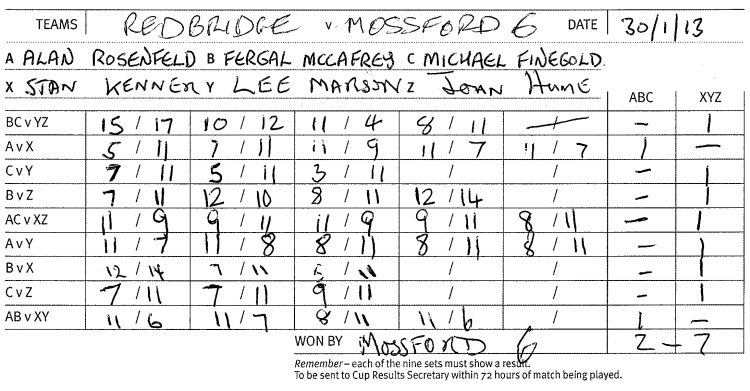 TEAMS REDBRIDGE v MOSSFORD 6 DATE 30/1/13
A ALAN ROSENFELD B FERGAL MCCAFREY C MICHAEL FINEGOLD
X STAN KENNER Y LEE MARSON Z JOHN HUME
ABC XYZ
BC v YZ 15 / 17 10 / 12 11 / 4 8 / 11 / – 1
A v X 5 / 11 7 / 11 11 / 9 11 / 7 11 / 7 1 –
C v Y 7 / 11 5 / 11 3 / 11 / / – 1
B v Z 7 / 11 12 / 10 8 / 11 12 / 14 – 1
AC v XZ 11 / 9 9 / 11 11 / 9 9 / 11 8 / 11 – 1
A v Y 11 / 7 11 / 8 8 / 11 8 / 11 8 / 11 – 1
B v X 12 / 14 7 / 11 / 11 / / – 1
C v Z 7 / 11 7 / 11 9 / 11 / / – 1
AB v XY 11 / 6 11 / 7 8 / 11 11 / 6 / 1 –
WON BY MOSSFORD 6 2 – 7
Remember – each of the nine sets must show a result.
To be sent to Cup Results Secretary within 72 hours of match being played.